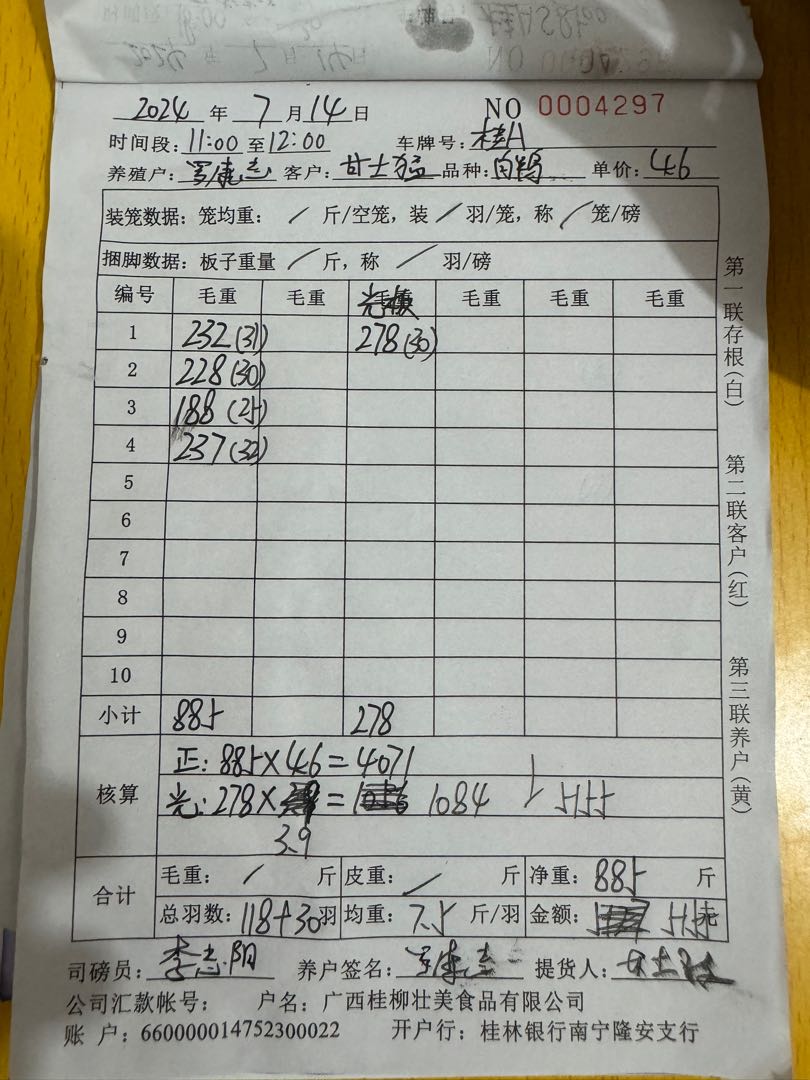 2024 年 7 月 14 日 NO 0004297
时间段: 11:00 至 12:00 车牌号: 桂A
养殖户: 罗康志 客户: 甘士猛 品种: 肉鸭 单价: 4.6
装笼数据: 笼均重: / 斤/空笼, 装 / 羽/笼, 称 / 笼/磅
捆脚数据: 板子重量 / 斤, 称 / 羽/磅
编号 毛重 毛重 毛重 毛重 毛重
1 232(31) 278(30)
2 228(30)
3 188(25)
4 237(32)
5
6
7
8
9
10
小计 885 278
核算
正: 885×4.6=4071
光: 278× = 1084 5155
3.9
合计
毛重: / 斤 皮重: / 斤 净重: 885 斤
总羽数: 118+30 羽 均重: 7.5 斤/羽 金额:
司磅员: 李志阳 养户签名: 罗康志 提货人:
公司汇款帐号: 户名: 广西桂柳壮美食品有限公司
账 户: 660000014752300022 开户行: 桂林银行南宁隆安支行
第一联存根(白)
第二联客户(红)
第三联养户(黄)